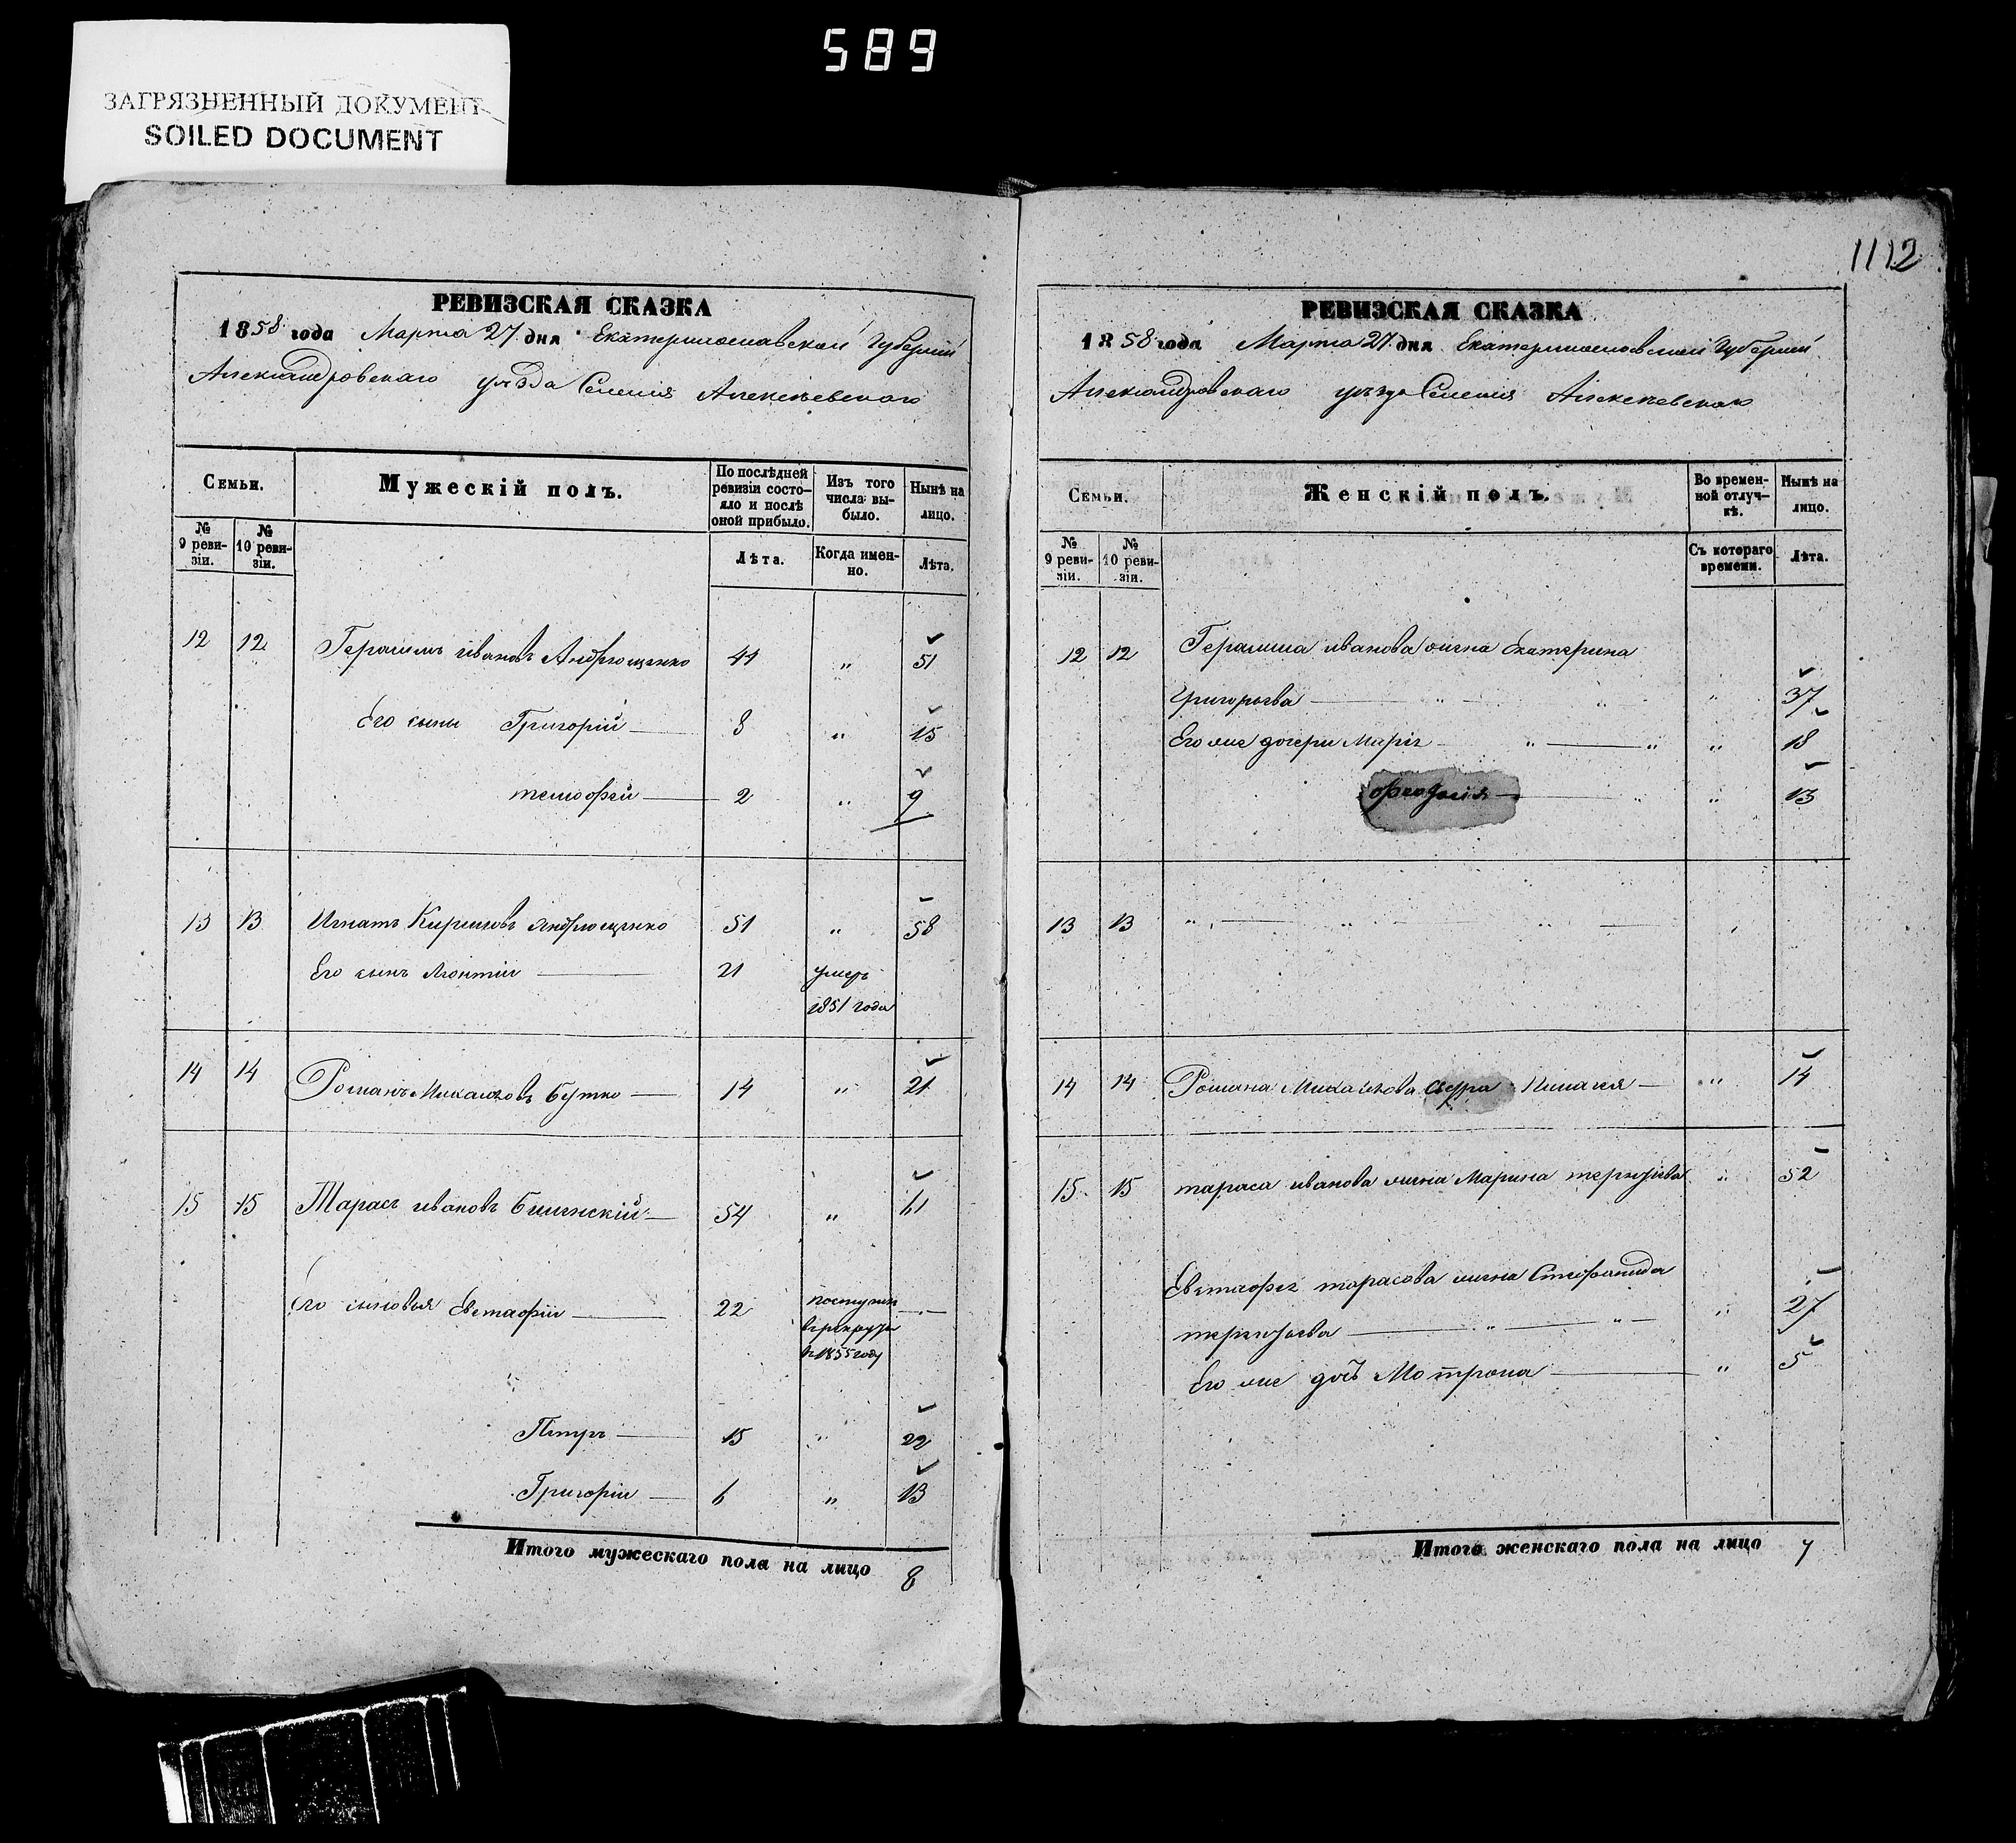 589
ЗАГРЯЗНЕННЫЙ ДОКУМЕНТ
SOILED DOCUMENT
РЕВИЗСКАЯ СКАЗКА
1858 года Марта 27 дня Екатеринославской Губернии
Александровскаго уѣзда Селенія Алексѣевскаго
Семьи.
Мужескій полъ.
По послѣдней ревизіи состояло и послѣ оной прибыло.
Изъ того числа выбыло.
Нынѣ на лицо.
№ 9 ревизіи.
№ 10 ревизіи.
Лѣта.
Когда именно.
Лѣта.
12 12 Герасимъ Ивановъ Андрющенко 44 " 51
Его сыны Григорій 8 " 15
тимофей 2 " 9
13 13 Игнатъ Кириловъ Андрющенко 51 " 58
Его сынъ Леонтій 21 умеръ
1851 года
14 14 Романъ Михайловъ Бутко 14 " 21
15 15 Тарасъ Ивановъ 54 " 61
Его сыновья Евстафій 22 поступилъ
в рекруты
в 1855 году
Петръ 15 " 22
Григорій 6 " 13
Итого мужескаго пола на лицо 8
1112
РЕВИЗСКАЯ СКАЗКА
1858 года Марта 27 дня Екатеринославской Губерніи
Александровскаго уѣзда Селенія Алексѣевскаго
Семьи.
Женскій полъ.
Во временной отлучкѣ.
Нынѣ на лицо.
№ 9 ревизіи.
№ 10 ревизіи.
Съ котораго времени.
Лѣта.
12 12 Герасима Иванова жена Екатерина
Григорьева " 37
Его же дочери Марія " 18
Феодосія " 13
13 13 "
14 14 Романа Михайлова сестра " 14
15 15 тараса Иванова жена Марина терентьева " 52
Евстафія тарасова жена Стефанида
терентьева " 27
Его же дочь Мотрона " 5
Итого женскаго пола на лицо 7